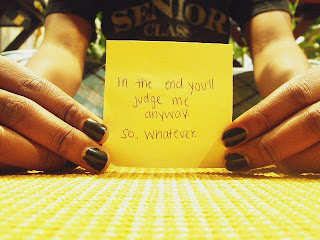 SENIOR
CLASS
In the end you'll
judge me
anyway
so, whatever.